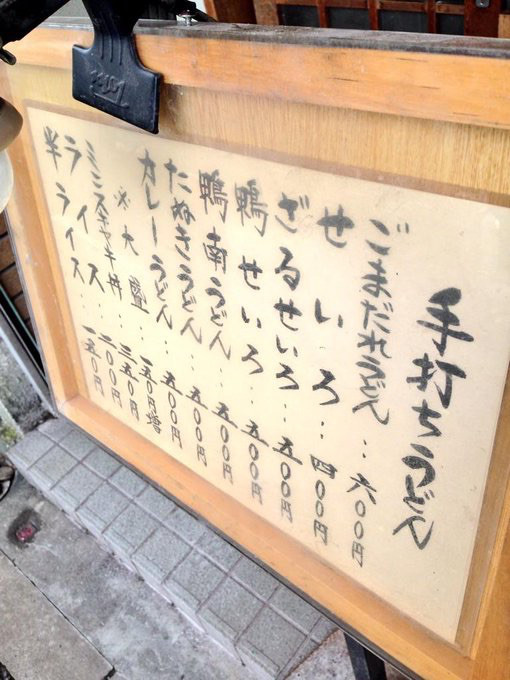 手打ちうどん
ごまだれうどん‥六〇〇円
せいろ‥四〇〇円
ざるせいろ‥五〇〇円
鴨せいろ‥五〇〇円
鴨南うどん‥五〇〇円
たぬきうどん‥五〇〇円
カレーうどん‥五〇〇円
※大盛‥一五〇円増
ミニステーキ丼‥三五〇円
ライス‥二〇〇円
半ライス‥一五〇円